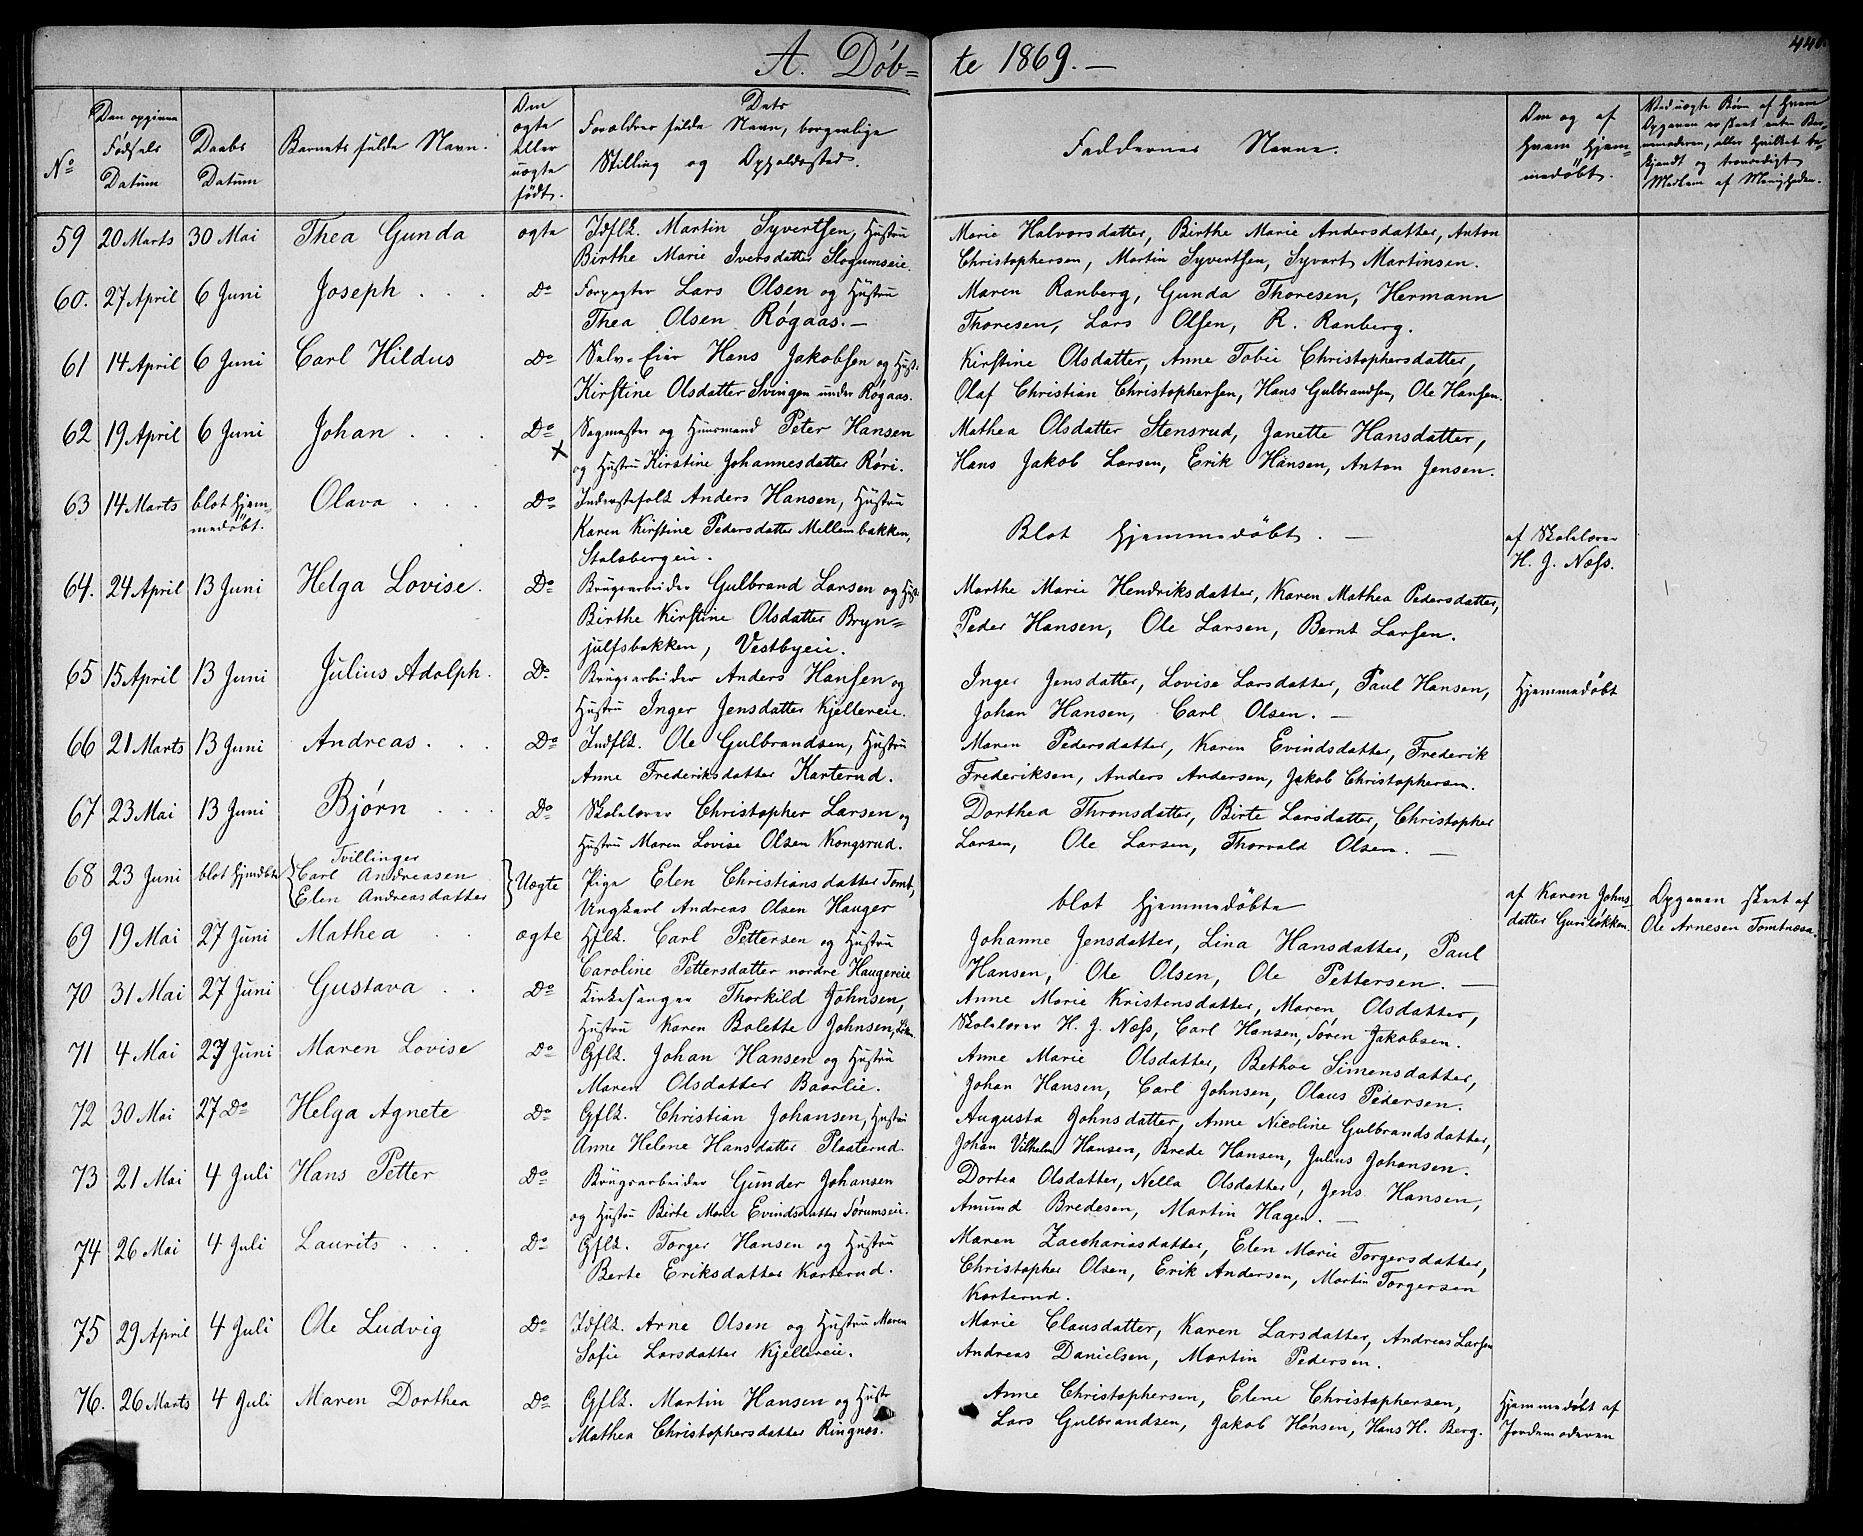 A. Döb=
te 1869. —
No
Den opgivne Fødsels Datum
Daabs Datum
Barnets fulde Navn.
Om ægte eller uægte født.
Dets Forældres fulde Navn, borgerlige Stilling og Opholdssted.
Faddernes Navne.
Om og af Hvem hjemmedöbt.
59 20 Marts 30 Mai Thea Gunda ægte Idflk. Martin Syvertsen, Hustru
Birthe Marie Iversdatter Slogumseie.
Marie Halvorsdatter, Birthe Marie Andersdatter, Anton
Christophersen, Martin Syvertsen, Syvart Martinsen.
60. 27 April 6 Juni Joseph . . . Do Forpagter Lars Olsen og Hustru
Thea Olsen Røgaas. —
Maren Ranberg, Gunda Thoresen, Hermann
Thoresen, Lars Olsen, R. Ranberg.
61 14 April 6 Juni Carl Hildus Do Selv-Eier Hans Jakobsen og Hust.
Kirstine Olsdatter Svingen under Røgaas.
Kirstine Olsdatter, Anne Tobie Christophersdatter,
Olaf Christian Christophersen, Hans Gulbrandsen, Ole Hansen.
62 19 April 6 Juni Johan . . . Do Sagmester og Huusmand Peter Hansen
og Hustru Kirstine Johannesdatter Röri.
Mathea Olsdatter Stensrud, Janette Hansdatter,
Hans Jakob Larsen, Erik Hansen, Anton Jensen.
63 14 Marts blot hjemmedöbt. Olava . . . Do Inderstefolk Anders Hansen, Hustru
Karen Kirstine Pedersdatter Mellembakken,
Stalsbergeie.
Blot hjemmedöbt. —
af Skolelærer
H. J. Næss.
64. 24 April 13 Juni Helga Lovise. Do Brugsarbeider Gulbrand Larsen og Hust.
Birthe Kirstine Olsdatter Bryn=
julfsbakken, Vestbyeie.
Marthe Marie Hendriksdatter, Karen Mathea Pedersdatter,
Peder Hansen, Ole Larsen, Bernt Larsen.
65 15 April 13 Juni Julius Adolph. Do Brugsarbeider Anders Hansen og
Hustru Inger Jensdatter Kjellereie.
Inger Jensdatter, Lovise Larsdatter, Paul Hansen,
Johan Hansen, Carl Olsen. —
Hjemmedöbt
66 21 Marts 13 Juni Andreas. . . Do Indflk. Ole Gulbrandsen, Hustru
Anne Frederiksdatter Karterud.
Maren Pedersdatter, Karen Evindsdatter, Frederik
Frederiksen, Anders Andersen, Jakob Christophersen.
67 23 Mai 13 Juni Bjørn . . . Do Skolelærer Christopher Larsen og
Hustru Maren Lovise Olsen Kongsrud.
Dorthea Thronsdatter, Birte Larsdatter, Christopher
Larsen, Ole Larsen, Thorvald Olsen. —
68 23 Juni blot hjemdöbte Tvillinger
Carl Andreasen
Elen Andreasdatter
Uægte Pige Elen Christiansdatter Tomt,
Ungkarl Andreas Olsen Hauger
blot hjemmedöbte
af Karen Johns
datter Guriløkken.
Opgaven skeet af
Ole Arnesen Tomtnæsa.
69 19 Mai 27 Juni Mathea . . ægte Hflk. Carl Pettersen og Hustru
Caroline Pettersdatter nordre Haugereie
Johanne Jensdatter, Lina Hansdatter, Paul
Hansen, Ole Olsen, Ole Pettersen. —
70 31 Mai 27 Juni Gustava . . Do Kirkesanger Thorkild Johnsen,
Hustru Karen Bolette Johnsen,
Anne Marie Kristensdatter, Maren Olsdatter,
Skolelærer H. J. Næss, Carl Hansen, Sören Jakobsen.
71 4 Mai 27 Juni Maren Lovise Do Gflk. Johan Hansen og Hustru
Maren Olsdatter Baarlie.
Anne Marie Olsdatter, Bethoe Simensdatter,
Johan Hansen, Carl Johnsen, Olaus Pedersen.
72 30 Mai 27 Do Helga Agnete Do Gflk. Christian Johansen, Hustru
Anne Helene Hansdatter Plaaterud.
Augusta Johnsdatter, Anne Nicoline Gulbrandsdatter,
Johan Vilhelm Hansen, Brede Hansen, Julius Johansen.
73 21 Mai 4 Juli Hans Petter Do Brugsarbeider Gunder Johansen
og Hustru Birte Marie Evindsdatter Sörumseie.
Dortea Olsdatter, Nella Olsdatter, Jens Hansen,
Amund Bredesen, Martin Hagen. —
74 26 Mai 4 Juli Laurits . . . Do Gflk. Torger Hansen og Hustru
Berte Eriksdatter Karterud.
Maren Zacchariasdatter, Elen Marie Torgersdatter,
Christopher Olsen, Erik Andersen, Martin Torgersen
Karterud.
75 29 April 4 Juli Ole Ludvig Do Idflk. Arne Olsen og Hustru Maren
Sofie Larsdatter Kjellereie.
Marie Clausdatter, Karen Larsdatter, Andreas Larsen
Andreas Danielsen, Martin Pedersen.
76. 26 Marts 4 Juli Maren Dorthea Do Gflk. Martin Hansen og Hustr
Mathea Christophersdatter Ringnæs.
Anne Christophersen, Elene Christophersen,
Lars Gulbrandsen, Jakob Hansen, Hans H. Berg.
Hjemmedöbt af
Jordemoderen